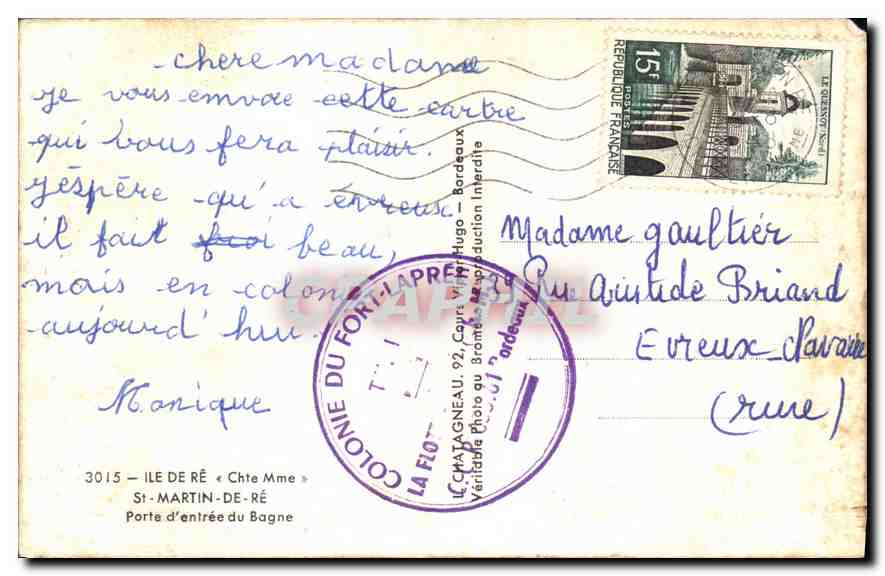 chere madame
je vous envoie cette cartre
qui vous fera plaisir.
j'éspère qu'a evreux
il fait froi beau,
mais en colonie
aujourd'hui.
Monique
3015 — ILE DE RÉ « Chte Mme »
St-MARTIN-DE-RÉ
Porte d'entrée du Bagne
CHATAGNEAU. 92, Cours Victor-Hugo — Bordeaux
Véritable Photo au Bromure Reproduction Interdite
COLONIE DU FORT-LAPRÉE
LA FLOT
Bordeaux
15F
POSTES
RÉPUBLIQUE FRANÇAISE
LE QUESNOY (Nord)
Madame gaultier
Rue Aristide Briand
Evreux-Navarre
(Eure)